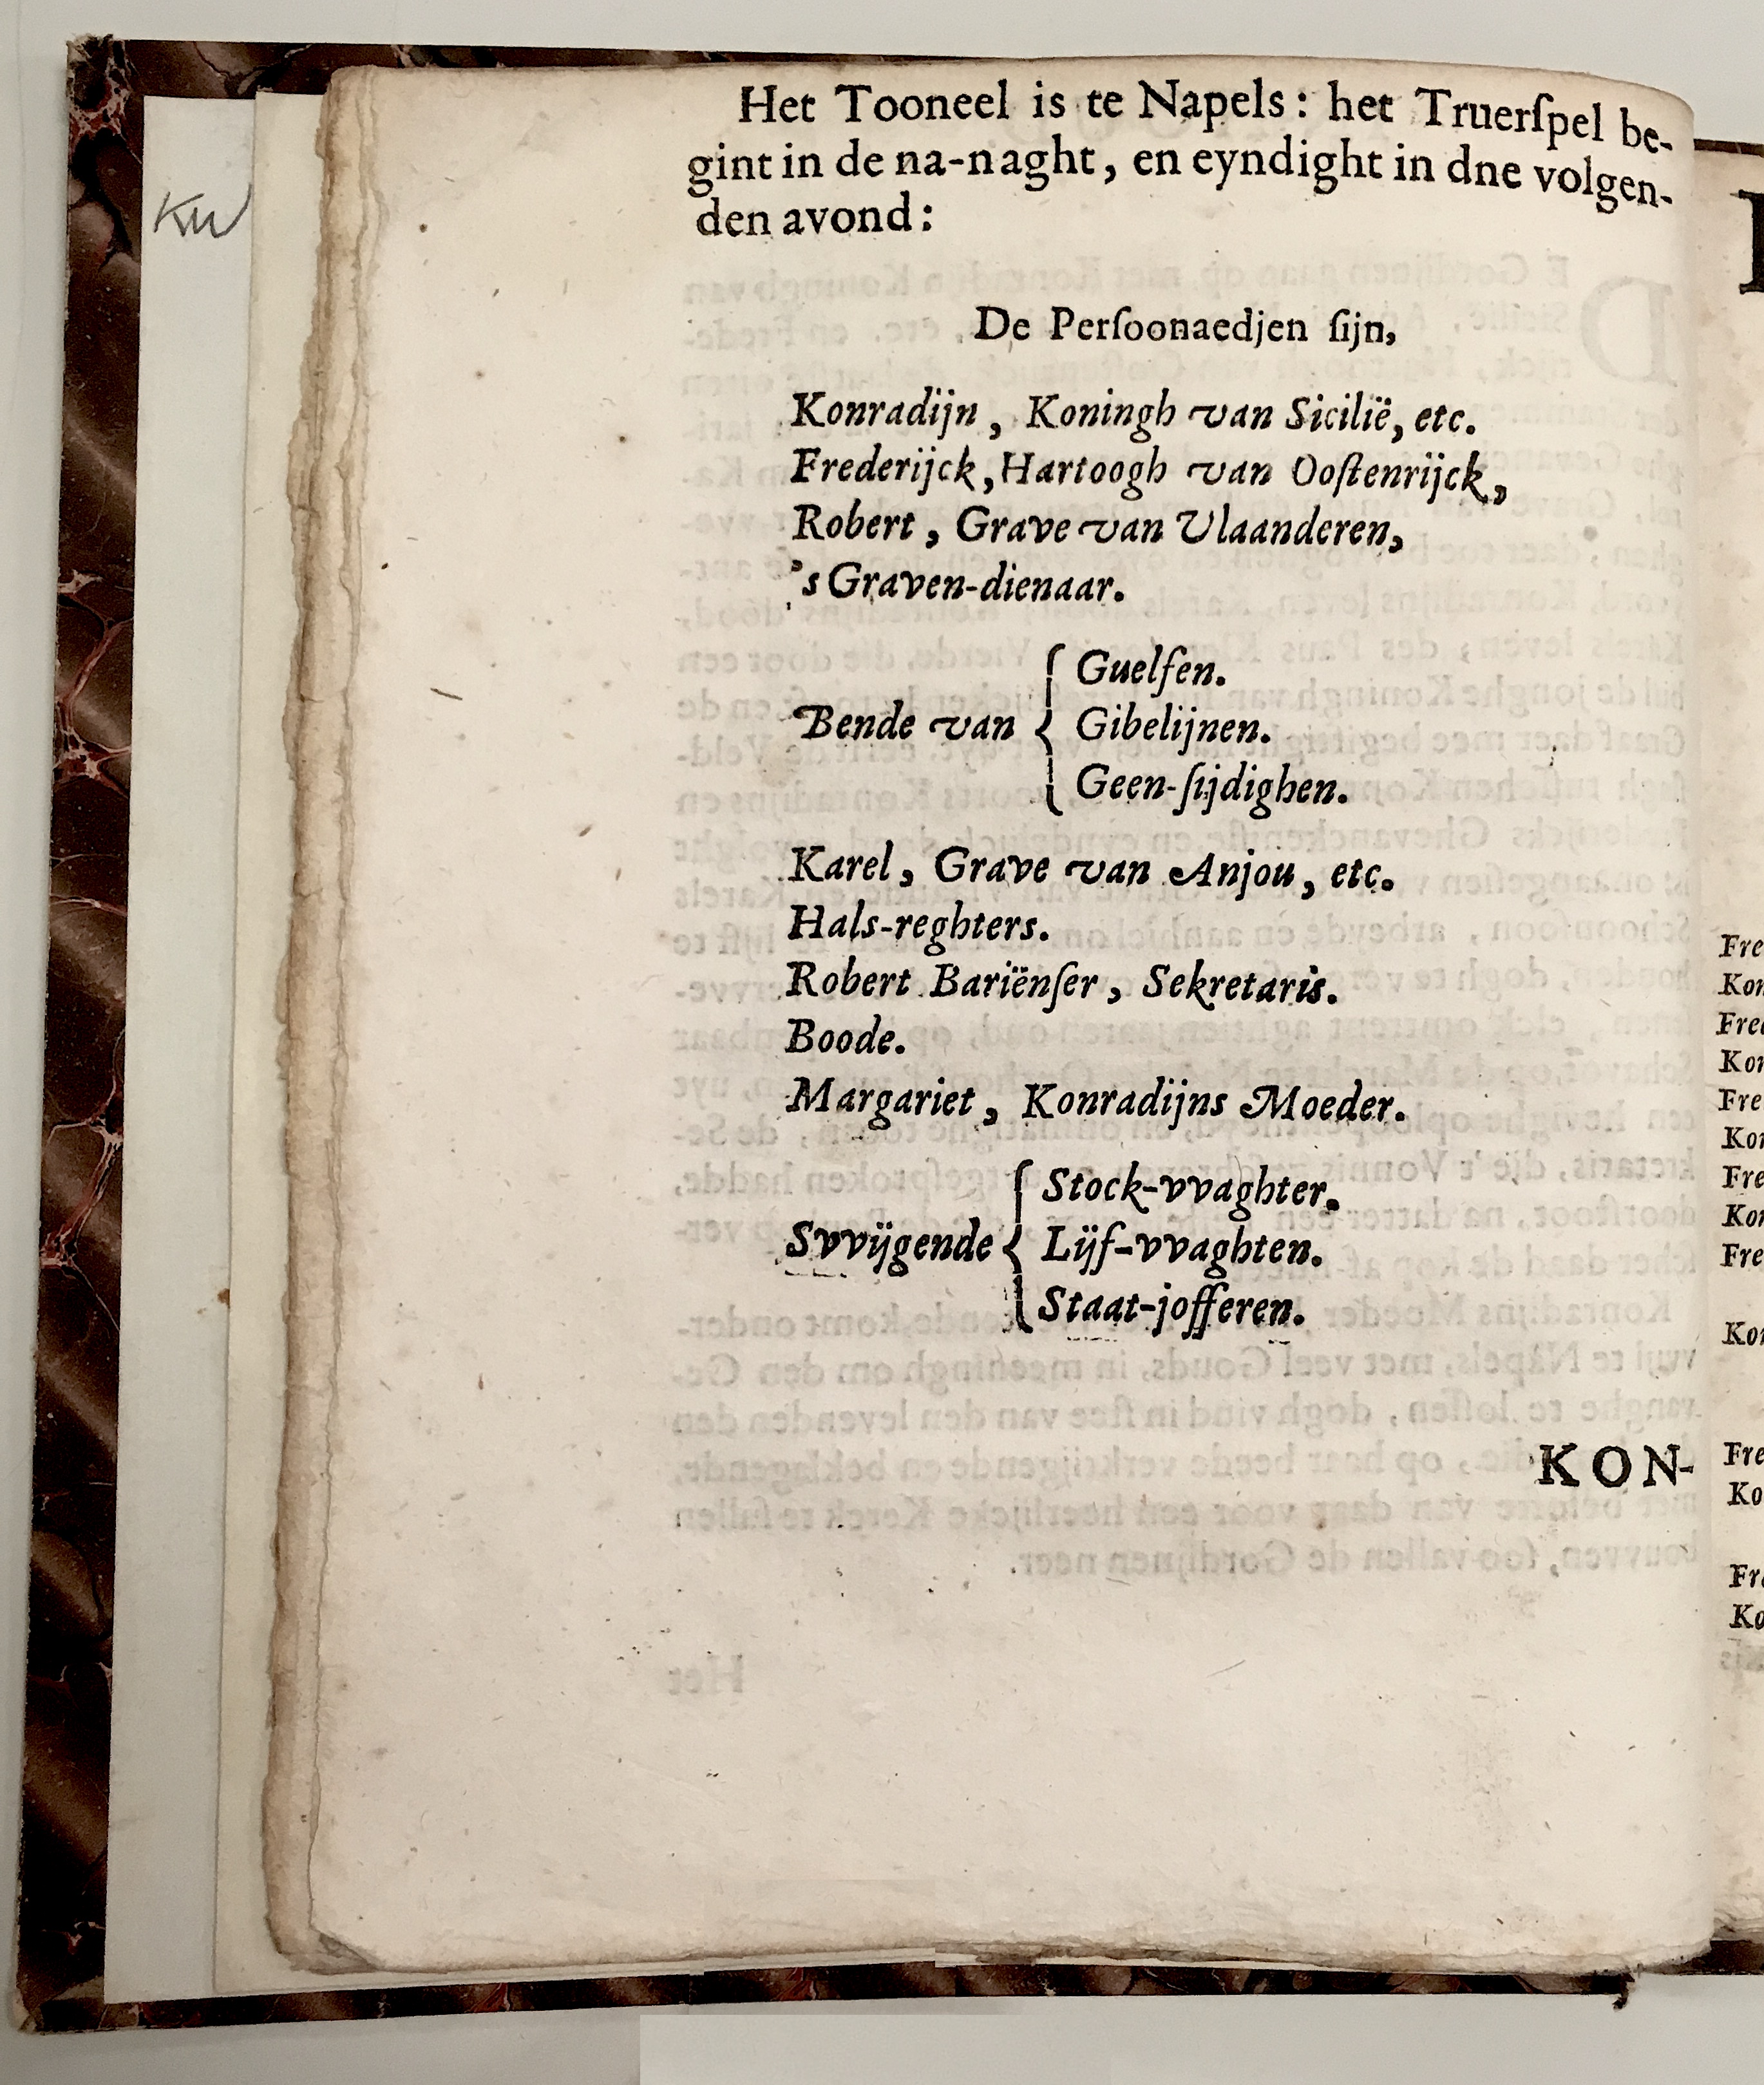 Het Tooneel is te Napels: het Truerſpel be-
gint in de na-naght, en eyndight in dne volgen-
den avond:
De Perſoonaedjen ſijn,
Konradijn, Koningh van Sicilië, etc.
Frederijck, Hartoogh van Ooſtenrijck,
Robert, Grave van Vlaanderen,
's Graven-dienaar.
Guelfen.
Bende van { Gibelijnen.
Geen-ſijdighen.
Karel, Grave van Anjou, etc.
Hals-reghters.
Robert Bariënſer, Sekretaris.
Boode.
Margariet, Konradijns Moeder.
Stock-vvaghter.
Svvijgende { Lijf-vvaghten.
Staat-jofferen.
KON-
KW
Fre
Kon
Fred
Kon
Fre
Kon
Fre
Kon
Fre
Kon
Fre
Ko
Fre
Ko